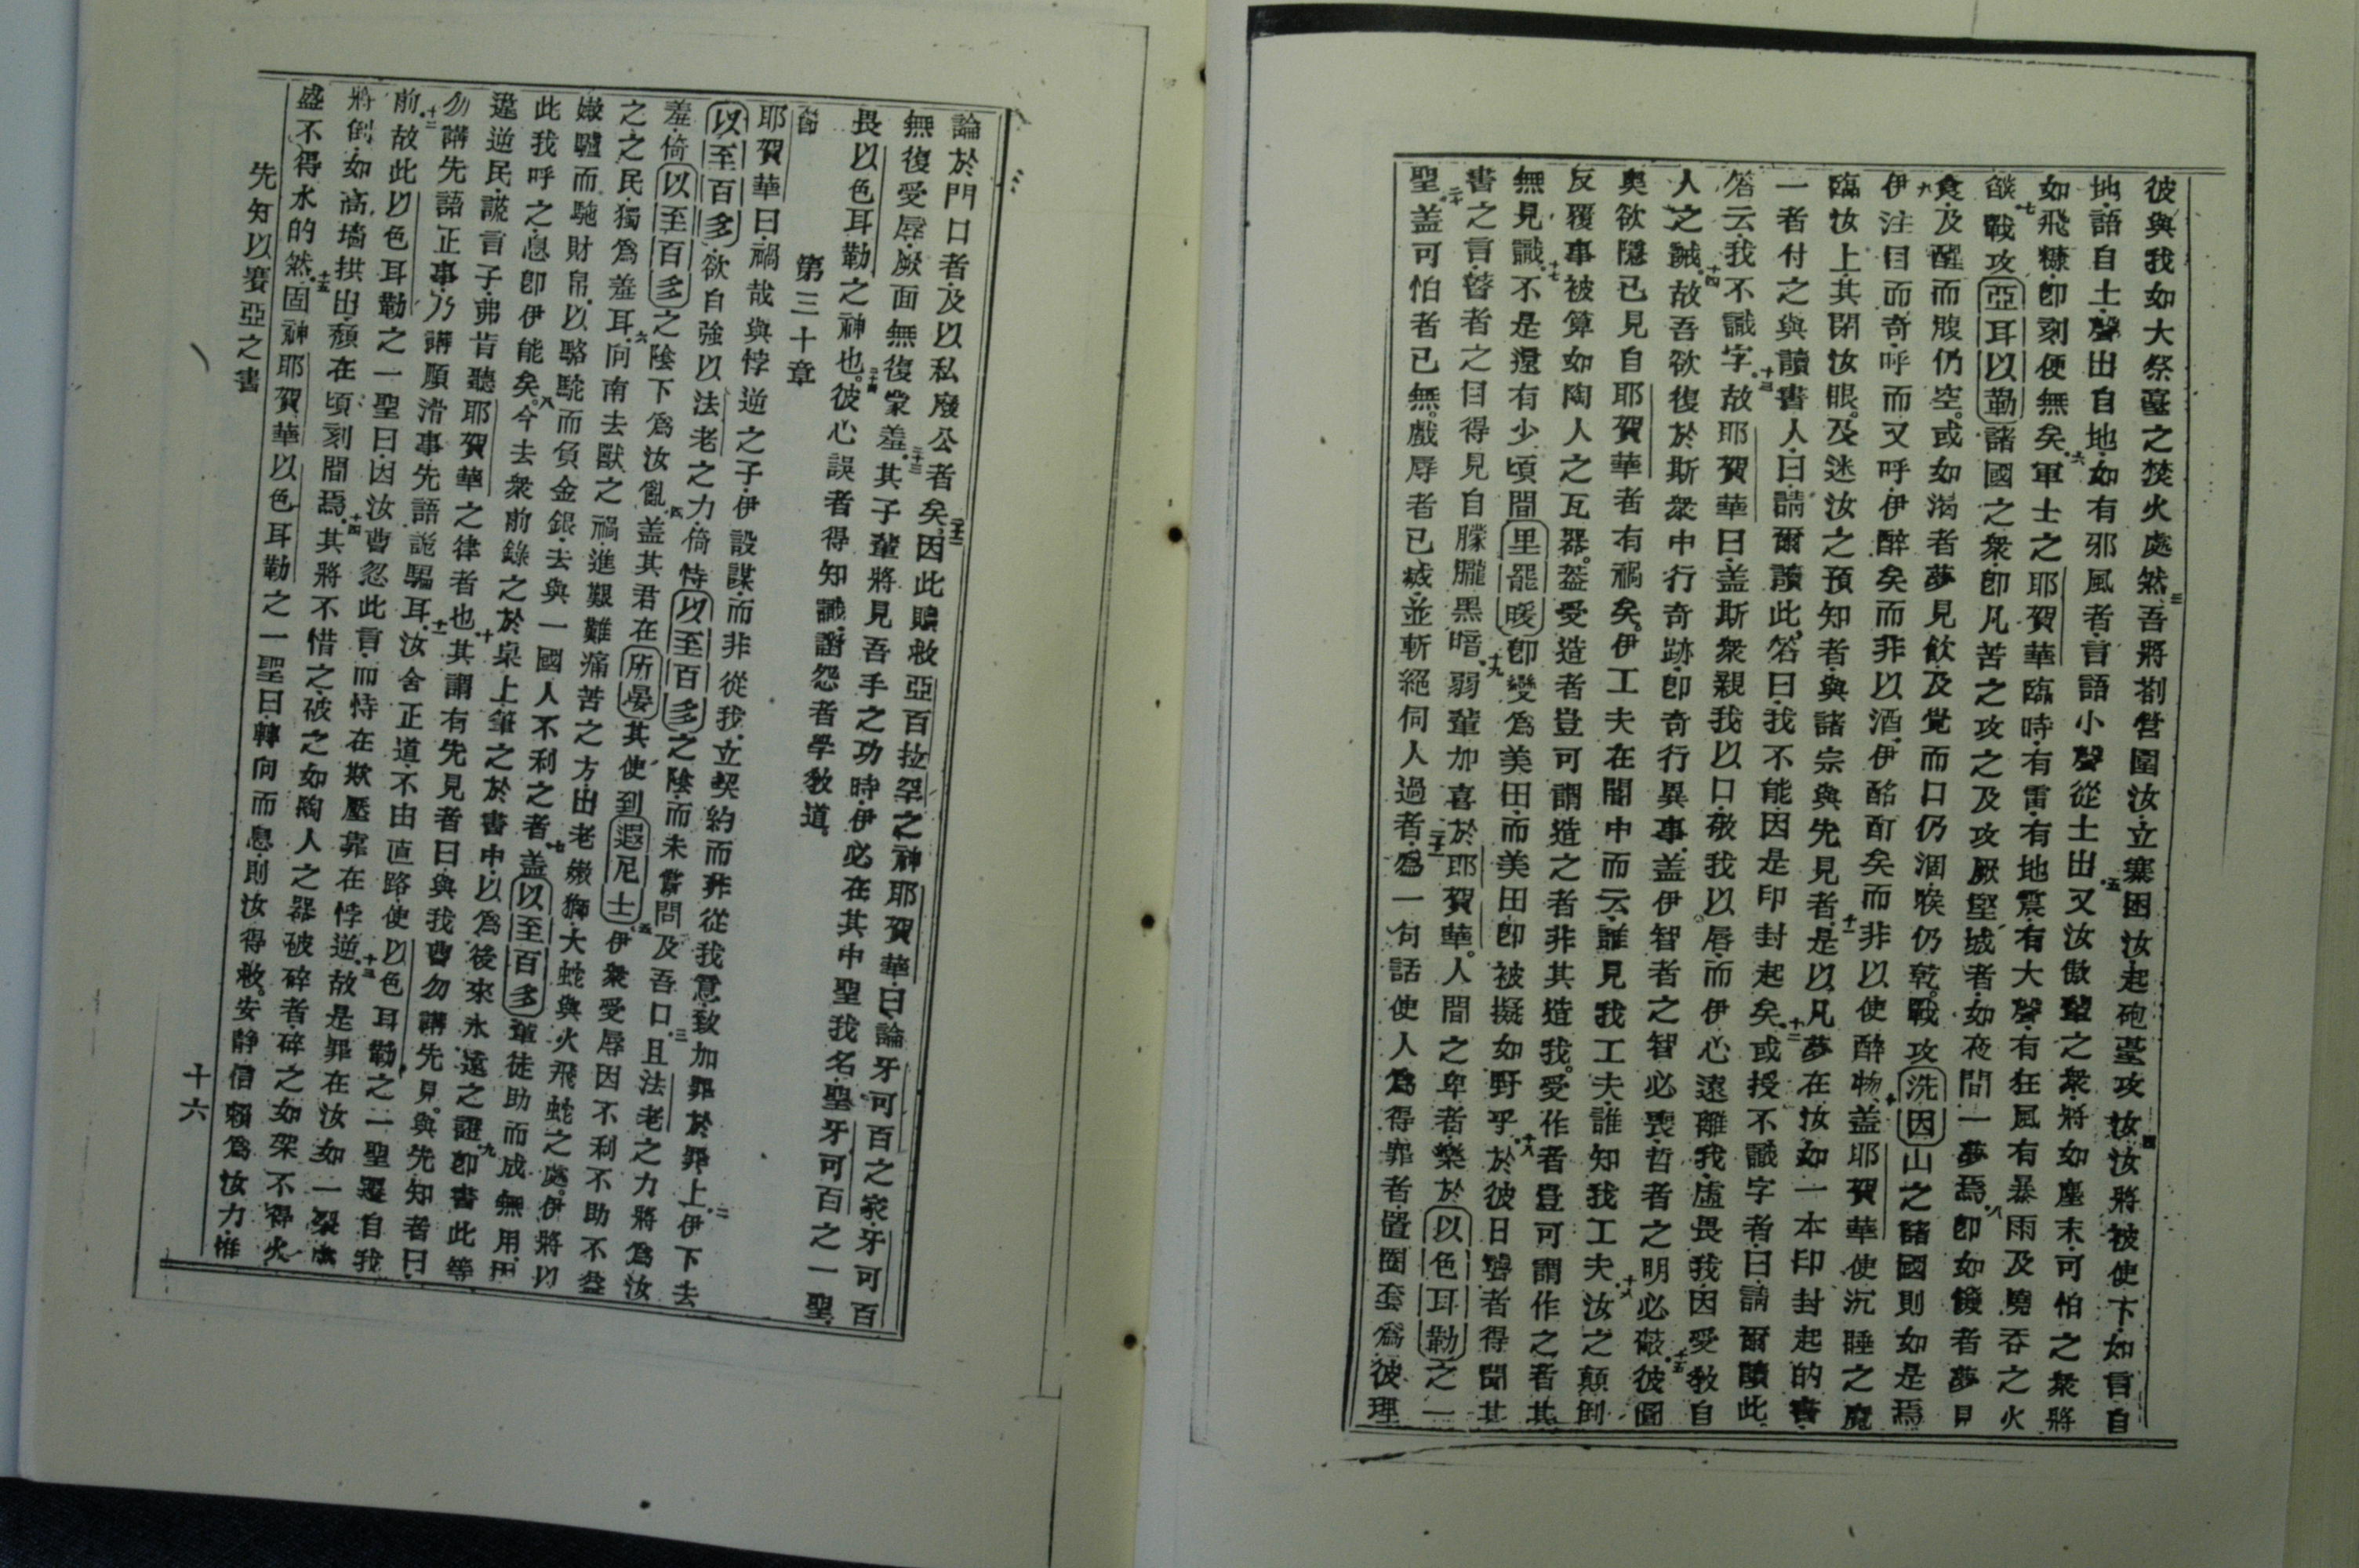 彼與我如大祭臺之焚火處然三吾將劄營圍汝立寨困汝起砲臺攻汝四汝將被使下如言自
地語自土聲出自地如有邪風者言語小聲從土出五又汝傲輩之衆將如塵末可怕之衆將
如飛糠卽刻便無矣六軍士之耶賀華臨時有雷有地震有大聲有狂風有暴雨及曉吞之火
燄七戰攻亞耳以勒諸國之衆卽凡苦之攻之及攻厥堅城者如夜間一夢焉八卽如饑者夢見
食及醒而腹仍空或如渴者夢見飲及覺而口仍涸喉仍乾戰攻洗因山之諸國則如是焉
九伊注目而奇呼而又呼伊醉矣而非以酒伊酩酊矣而非以使醉物十蓋耶賀華使沉睡之魔
臨汝上其閉汝眼及迷汝之預知者與諸宗與先見者十一是以凡夢在汝如一本印封起的書
一者付之與讀書人曰請爾讀此答曰我不能因是印封起矣十二或授不識字者曰請爾讀此
答云我不識字十三故耶賀華曰蓋斯衆親我以口敬我以唇而伊心遠離我虛畏我因受教自
人之誡十四故吾欲復於斯衆中行奇跡卽奇行異事蓋伊智者之智必喪哲者之明必蔽十五彼圖
奥欲隱已見自耶賀華者有禍矣伊工夫在闇中而云誰見我工夫誰知我工夫十六汝之顛倒
反覆事被算如陶人之瓦器蓋受造者豈可謂造之者非其造我受作者豈可謂作之者其
無見識十七不是還有少頃間里罷暖卽變爲美田而美田卽被擬如野乎十八於彼日聾者得聞其
書之言瞽者之目得見自朦朧黑暗十九弱輩加喜於耶賀華人間之卑者樂於以色耳勒之一
聖二十蓋可怕者已無戲辱者已滅並斬絕伺人過者二十一爲一句話使人爲得罪者置圈套爲彼理
論於門口者及以私廢公者矣二十二因此贖救亞百拉罕之神耶賀華曰論牙可百之家牙可百
無復受辱厥面無復蒙羞二十三其子輩將見吾手之功時伊必在其中聖我名聖牙可百之一聖
畏以色耳勒之神也二十四彼心誤者得知識謝怨者學教道
第三十章
節
耶賀華曰禍哉與悖逆之子伊設謀而非從我立契約而非從我意致加罪於罪上二伊下去
以至百多欲自強以法老之力倚恃以至百多之陰而未嘗問及吾口三且法老之力將爲汝
羞倚以至百多之陰下爲汝亂四蓋其君在所晏其使到遐尼士五伊衆受辱因不利不助不益
之之民獨爲羞耳六向南去獸之禍進艱難痛苦之方出老嫩獅大蛇與火飛蛇之處伊將以
嫩驢而馳財帛以駱駝而負金銀去與一國人不利之者七蓋以至百多輩徒助而成無用田
此我呼之息卽伊能矣八今去衆前錄之於桌上筆之於書中以爲後來永遠之證九卽書此等
違逆民謊言子弗肯聽耶賀華之律者也十其謂有先見者曰與我曹勿講先見與先知者曰
勿講先語正事乃講順滑事先語詭騙耳十一汝舍正道不由直路使以色耳勒之一聖離自我
前十二故此以色耳勒之一聖曰因汝曹忽此言而恃在欺壓靠在悖逆十三故是罪在汝如一裂處
將倒如高墻拱出頹在頃刻間焉十四其將不惜之破之如陶人之器破碎者碎之如架不得火
盛不得水的然十五固神耶賀華以色耳勒之一聖曰轉向而息則汝得救安靜信賴爲汝力惟
先知以賽亞之書
十六